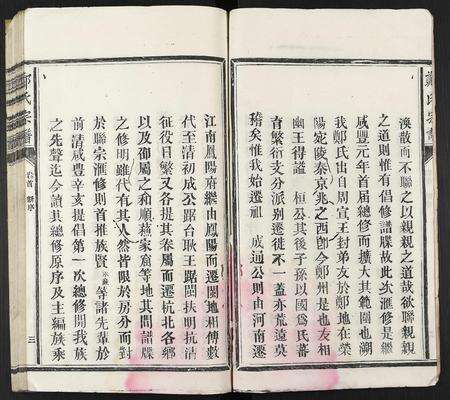 鄭氏宗譜
渙散而不聯之以親親之道哉欲聯親親
之道則惟有倡修譜牒故此次滙修是繼
咸豐元年首屆總修而擴大其範圍也溯
我鄭氏出自周宣王封弟友於鄭地在榮
陽宛陵泰京兆之西卽今鄭州是也友相
幽王得諡 桓公其後子孫以國爲氏蕃
育繁衍支分派別遷徙不一蓋亦荒遠莫
稽矣惟我始遷祖 成通公則由河南遷
江南鳳陽府繼由鳳陽而遷閩地相傳數
代至清初成公踞台耿王踞閩扶明抗清
征役日繁又各提其眷屬而遷杭北各鄉
以及卲屬之和順藕家富等地其間譜牒
之修明雖代有其人然皆限於房分而對
於聯宗滙修則首推族賢 等諸先輩於
前清咸豐辛亥提倡第一次總修開我族
之先聲迄今讀其總修原序及主編族乘
鄭氏宗譜
卷首 新序
三